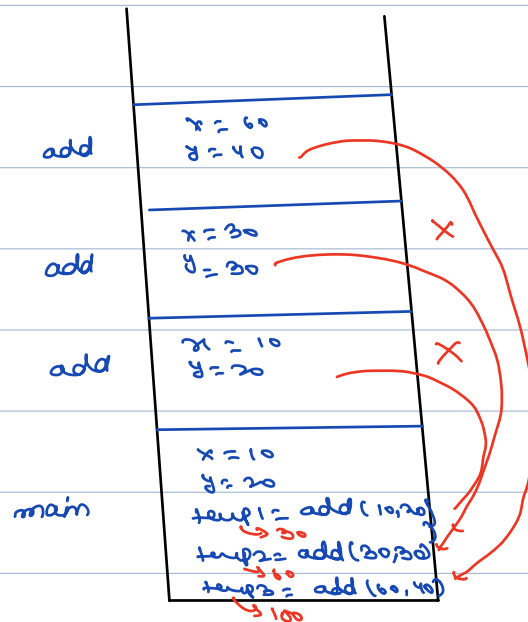 add
x = 60
y = 40
add
x = 30
y = 30
add
x = 10
y = 20
main
x = 10
y = 20
temp1 = add(10,20)
30
temp2 = add(30,30)
60
temp3 = add(60,40)
100